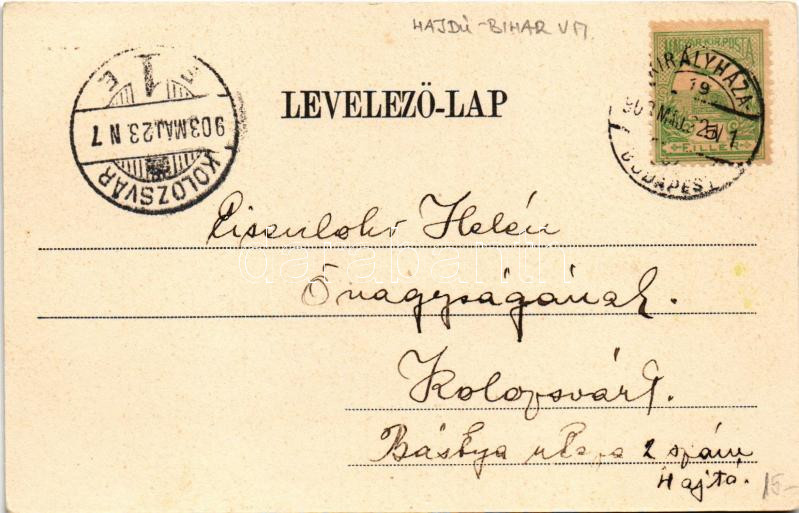 HAJDÚ-BIHAR VM
MAGYAR KIR. POSTA
5
FILLÉR
KIRÁLYHÁZA
19
BUDAPEST
1
903 MÁJ 23 N 7
KOLOZSVÁR
LEVELEZŐ-LAP
Helén
Őnagyságának.
Kolozsvárt.
Bástya utcza 2 szám
Hajtó.
15-
darabanth